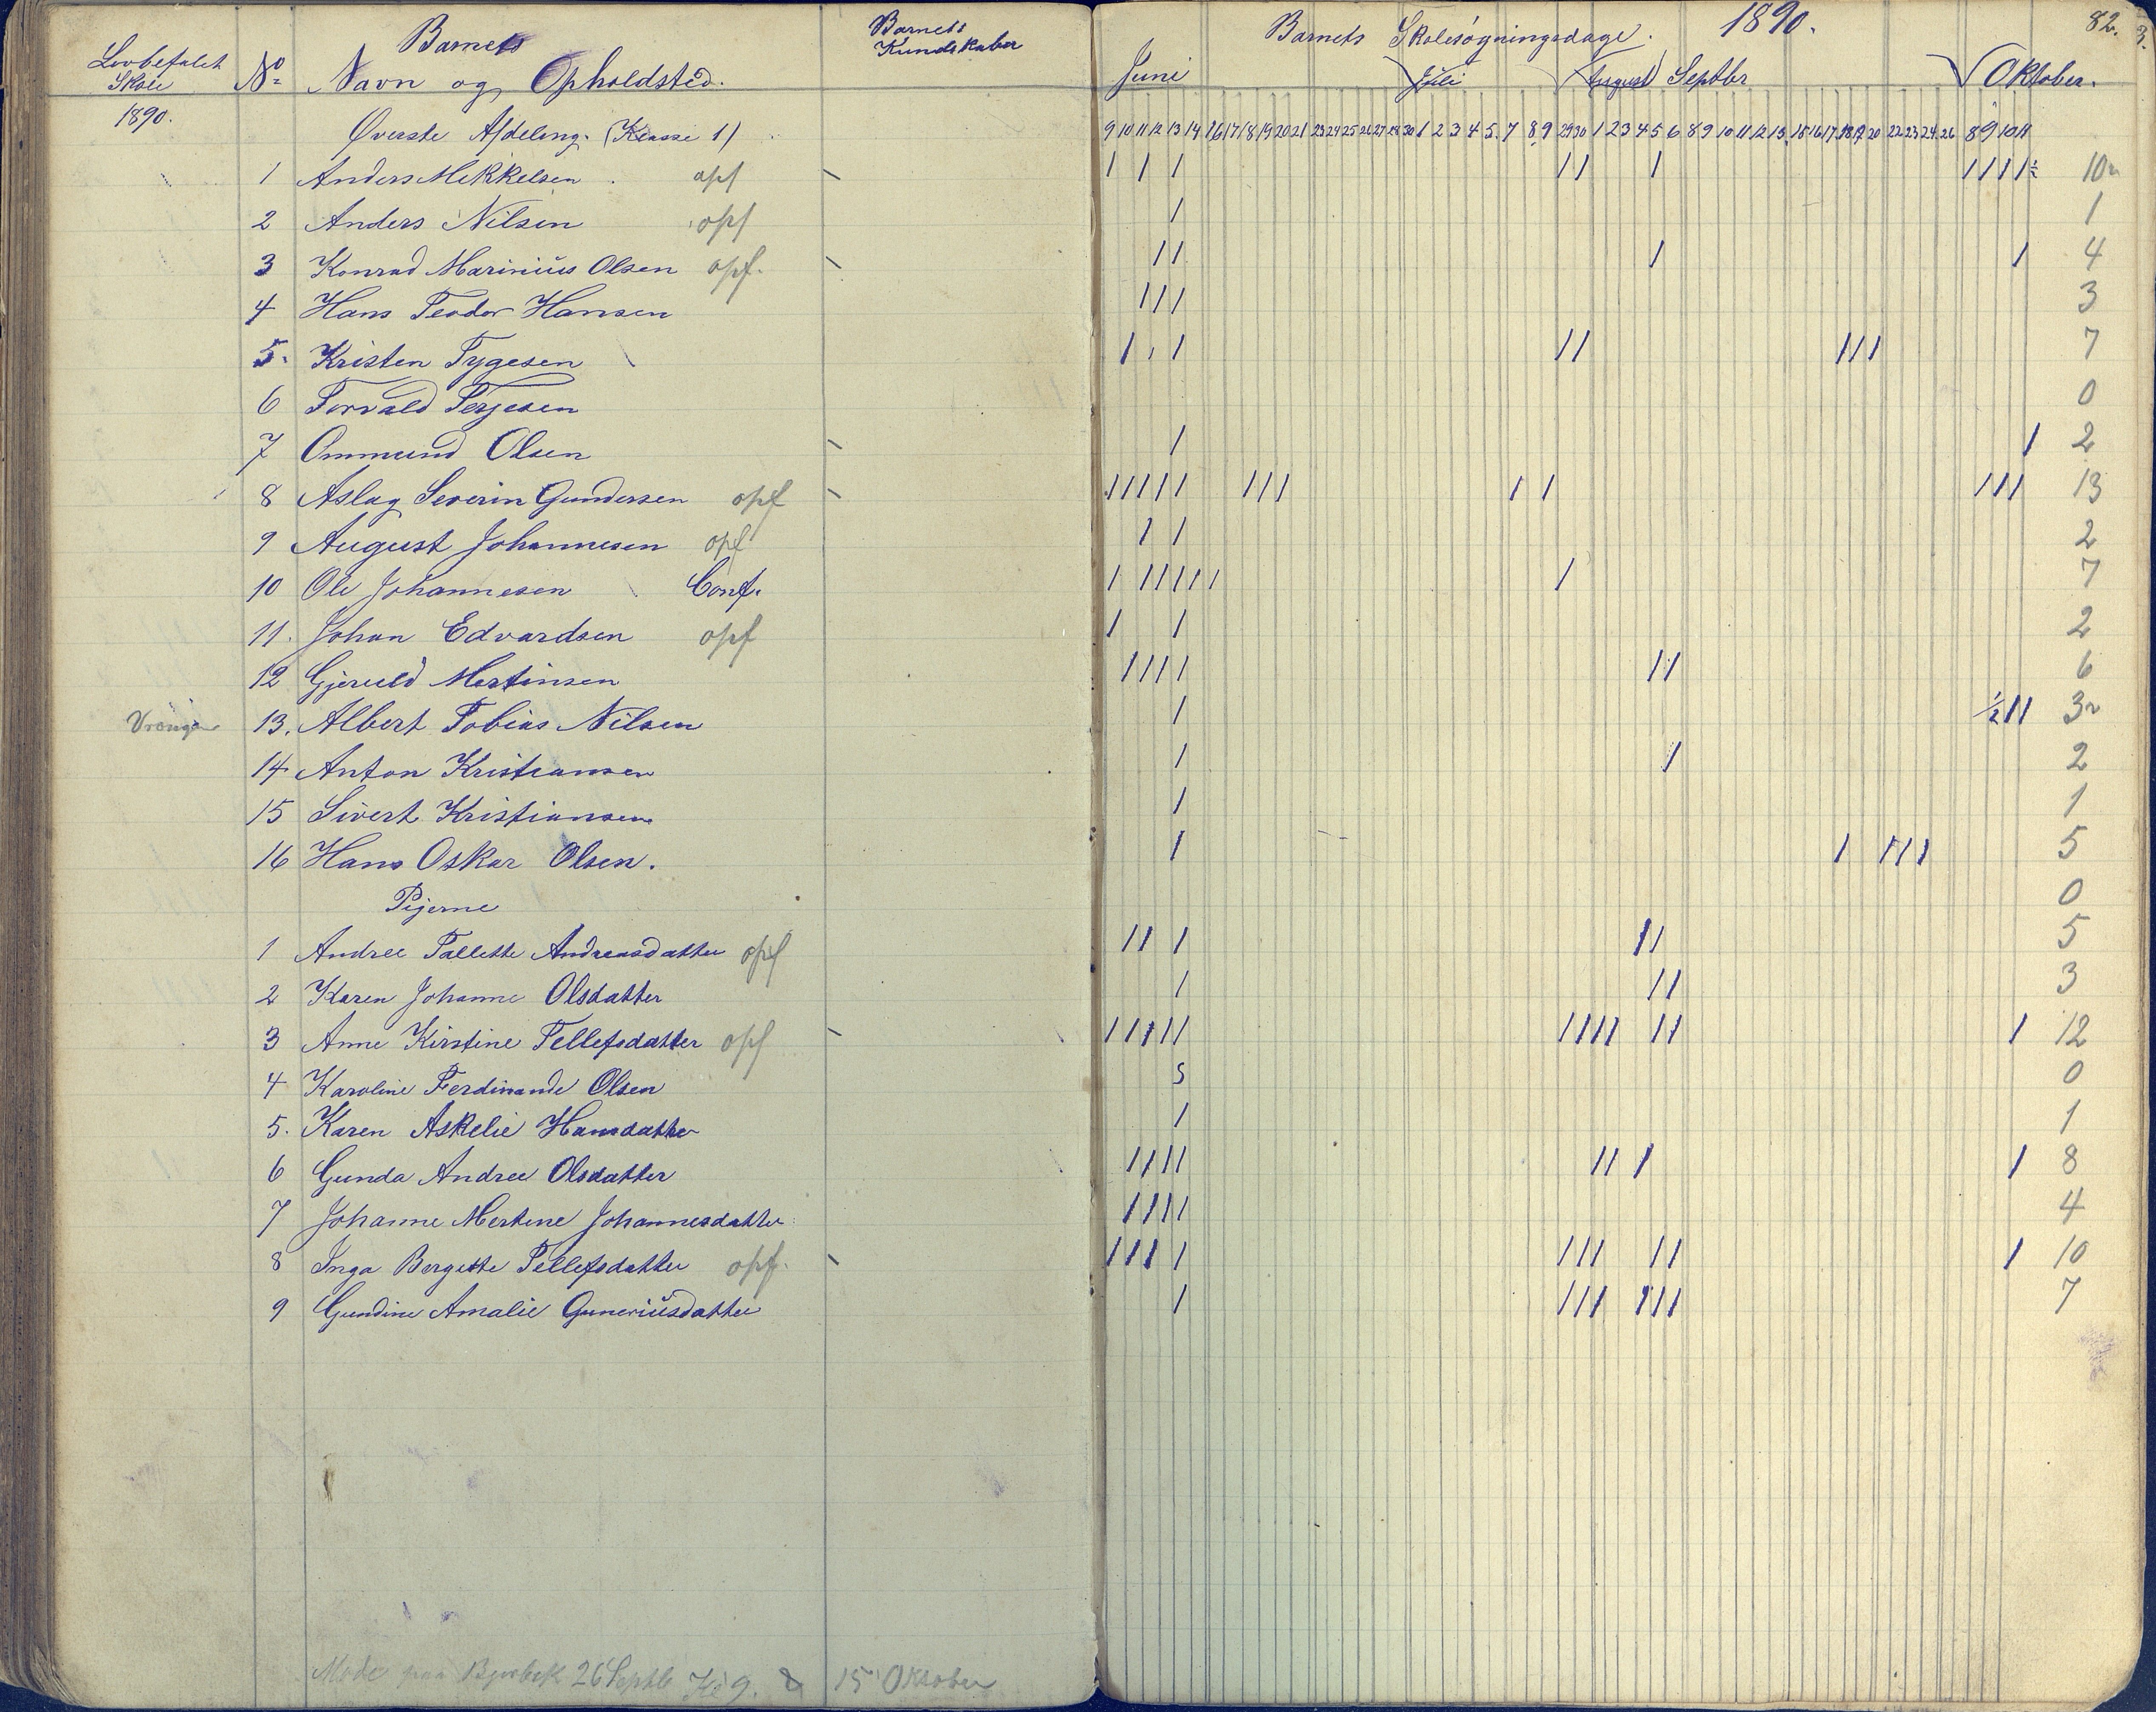 Lovbefalet Skole
1890.
No
Barnets
Navn og Opholdsted.
Barnets Kundskaber
Barnets Skolesøgningsdage. 1890. 82.
Juni Juli August Septbr Oktober.
Øverste Afdeling. (Klasse 1)
9 10 11 12 13 14 16 17 18 19 20 21 23 24 25 26 27 28 30 1 2 3 4 5 7 8 9 29 30 1 2 3 4 5 6 8 9 10 11 12 13 15 16 17 18 19 20 22 23 24 26 8 9 10 11
1 Anders Mikkelsen opf / / / / / / / / / / ½ 10
2 Anders Nilsen opf / 1
3 Konrad Marinius Olsen opf. / / / / 4
4 Hans Teodor Hansen / / / 3
5. Kristen Tygesen / / / / / / / / 7
6 Torvald Terjesen 0
7 Ommund Olsen / / 2
8 Aslag Severin Gundersen opf / / / / / / / / / / / / / 13
9 August Johannesen opf / / 2
10 Ole Johannesen Conf. / / / / / / / 7
11. Johan Edvardsen opf / / 2
12 Gjeruld Martinsen / / / / / / 6
13. Albert Tobias Nilsen / ½ / / 3
14 Anton Kristiansen / / 2
15 Sivert Kristiansen / 1
16 Hans Oskar Olsen. / / / / / 5
Pigerne 0
1 Andree Tallette Andreasdatter opf / / / / / 5
2 Karen Johanne Olsdatter / / / 3
3 Anne Kirstine Tellefsdatter opf / / / / / / / / / / / / 12
4 Karoline Ferdinande Olsen s 0
5. Karen Askelie Hansdatter / 1
6 Gunda Andree Olsdatter / / / / / / / / 8
7 Johanne Mertine Johannesdatter / / / / 4
8 Inga Bergitte Tellefsdatter opf. / / / / / / / / / / 10
9 Gundine Amalie Guneriusdatter / / / / / / / 7
Møde paa 26 Septb Kl 9. 15 Oktober